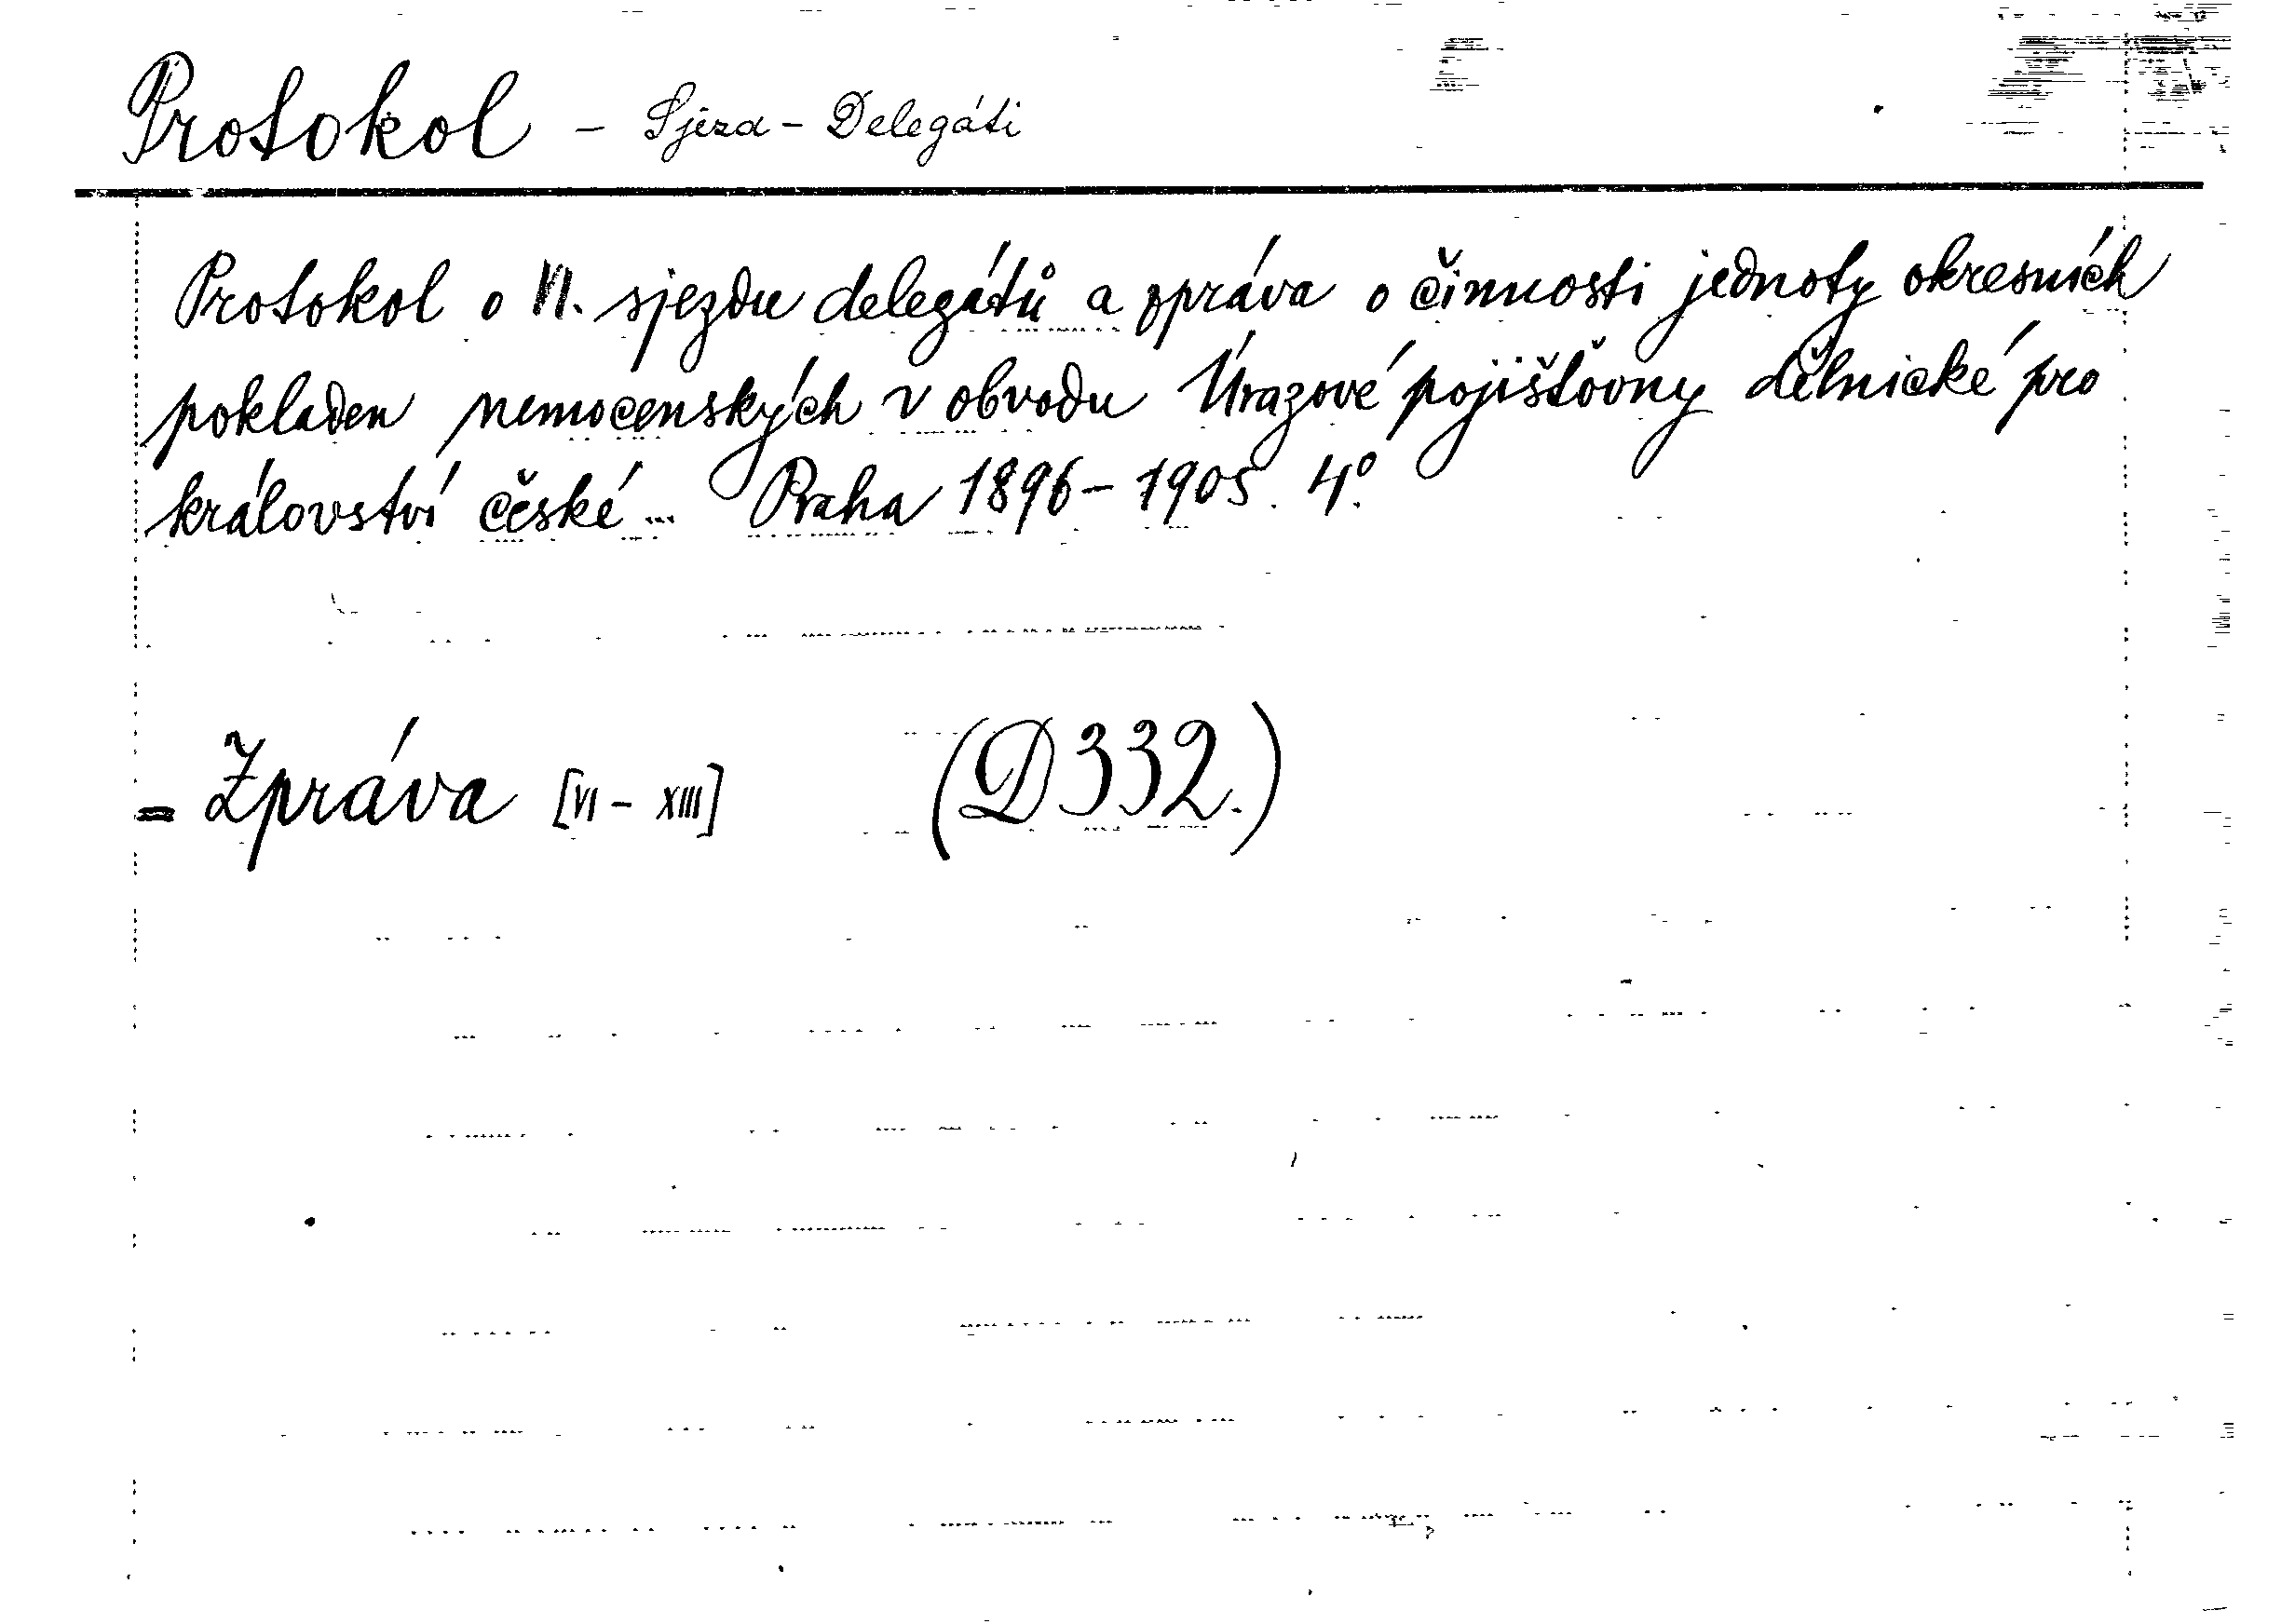 Protokol - Sjezd - Delegáti
Protokol o VI. sjezdu delegátů a zpráva o činnosti jednoty okresních
pokladen nemocenských v obvodu Úrazové pojišťovny dělnické pro
království české ... Praha 1896-1905. 4°.
= Zpráva [VI - XIII] (D 332.)